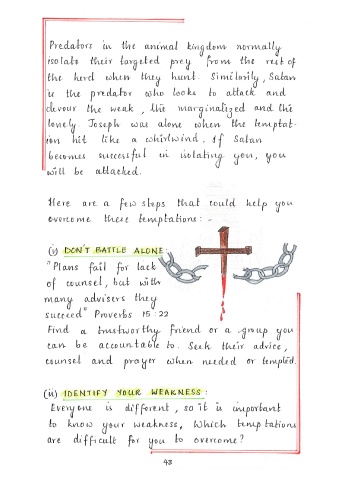 Predators in the animal kingdom normally
isolate their targeted prey from the rest of
the herd when they hunt. Similarily, Satan
is the predator who looks to attack and
devour the weak, the marginalized and the
lonely Joseph was alone when the temptat-
ion hit like a whirlwind. If Satan
becomes successful in isolating you, you
will be attacked.
Here are a few steps that could help you
overcome these temptations: -
(i) DON'T BATTLE ALONE:
"Plans fail for lack
of counsel, but with
many advisers they
succeed" Proverbs 15:22
Find a trustworthy friend or a group you
can be accountable to. Seek their advice,
counsel and prayer when needed or tempted.
(ii) IDENTIFY YOUR WEAKNESS:
Everyone is different, so it is important
to know your weakness, Which temptations
are difficult for you to overcome?
43